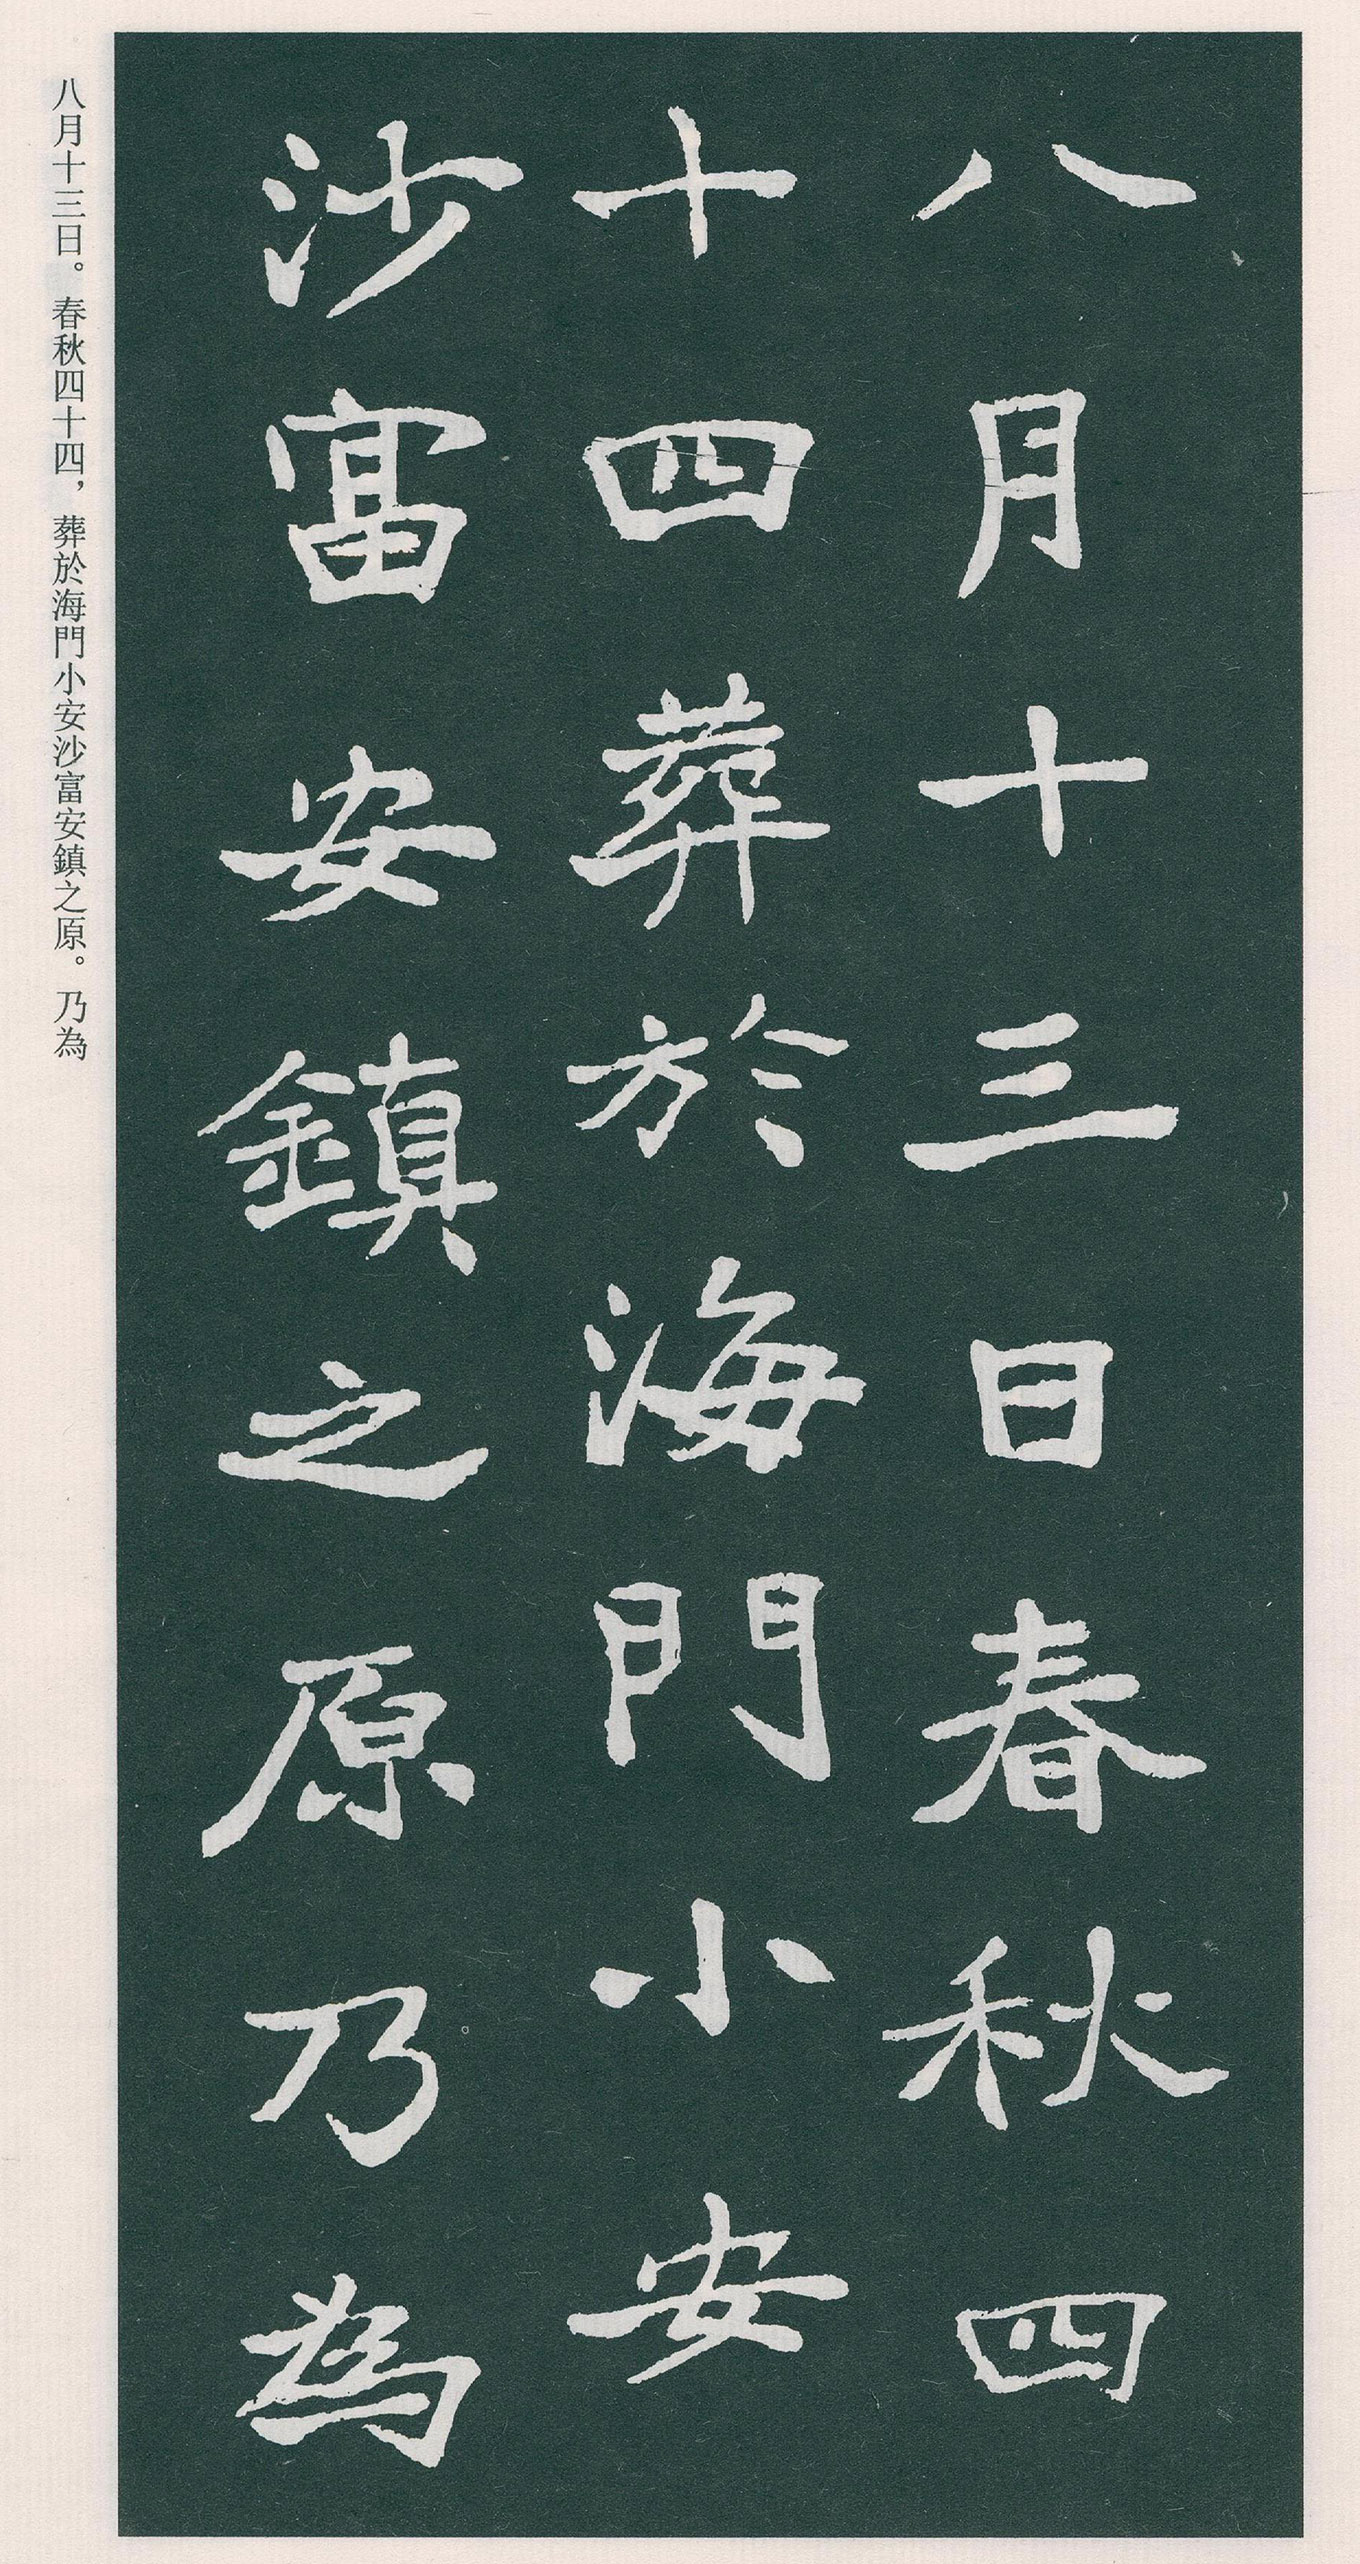 八月十三日春秋四
十四葬於海門小安
沙富安鎮之原乃為
八月十三日。春秋四十四，葬於海門小安沙富安鎮之原。乃為